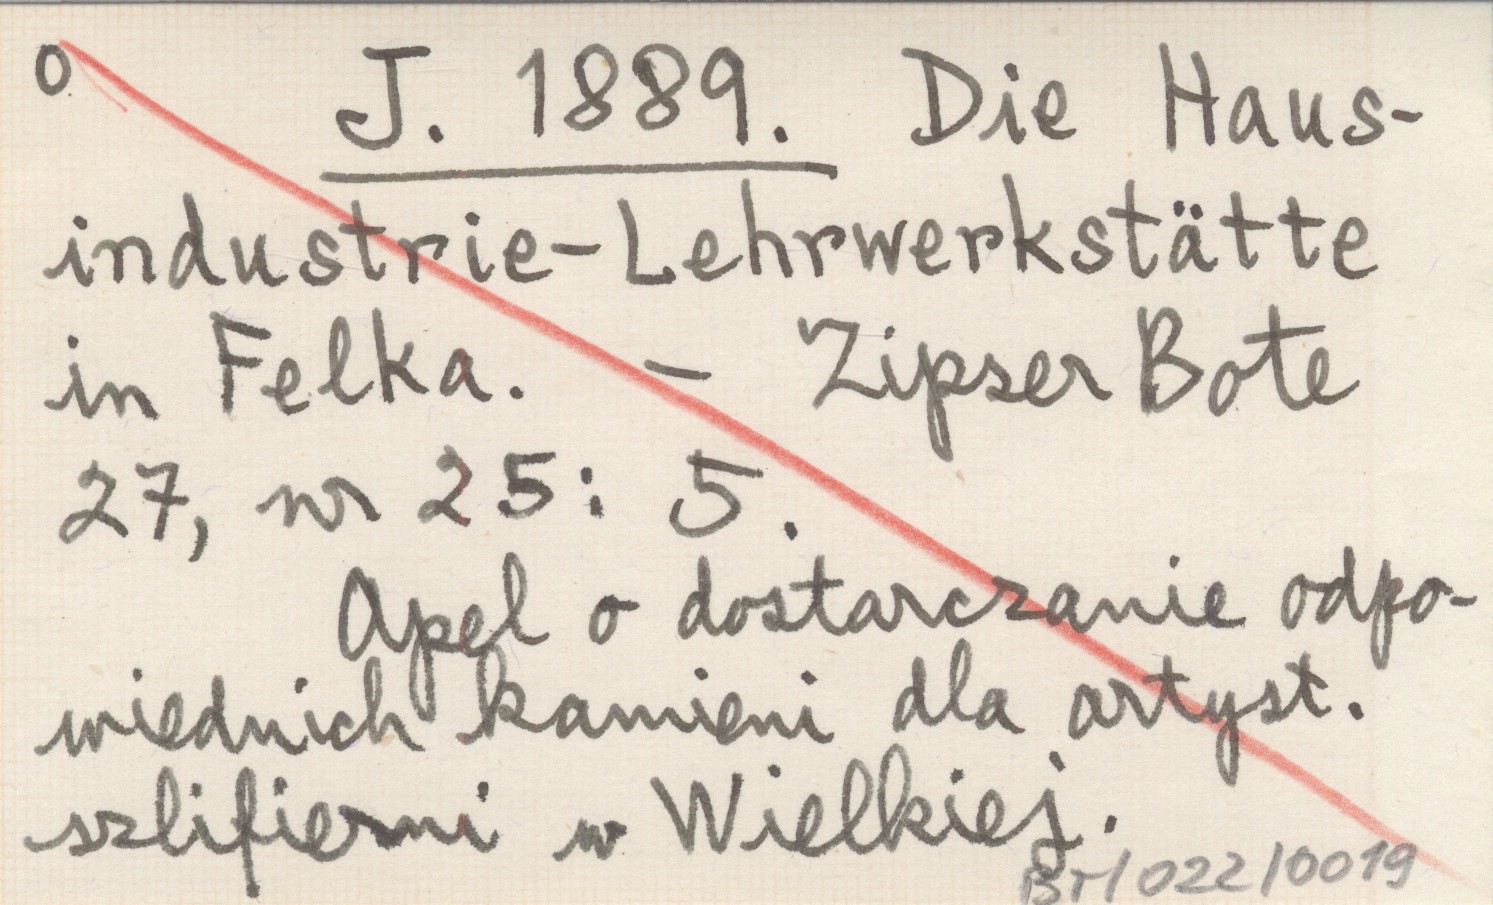 o. J. 1889. Die Haus-
industrie-Lehrwerkstätte
in Felka. – Zipser Bote
27, nr 25: 5.
Apel o dostarczanie odpo-
wiednich kamieni dla artyst.
szlifierni w Wielkiej.
Br/022/0019